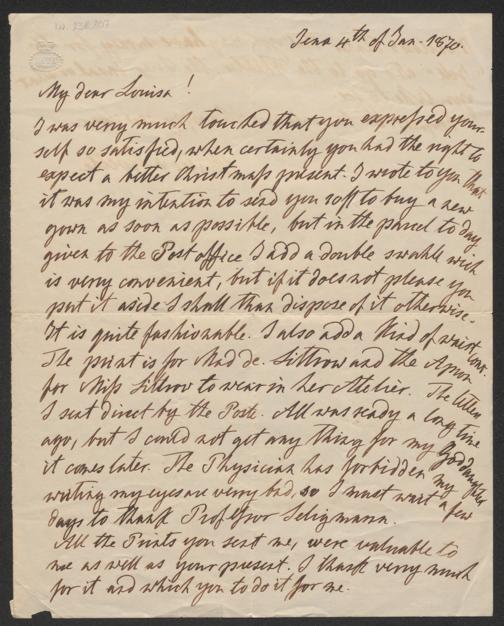 Jena 4th of Jan. 1870.
My dear Louisa!
I was verry much touched that you expressed your-
self so satisfied, when certainly you had the right to
expect a better Christmass present. I wrote to you that
it was my intention to send you soft to buy a new
gown as soon as possible, but in the parcel to day
given to the Post office I add a double swahle wich
is verry convenient, but if it does not please you
put it aside I shall than dispose of it otherwise.
It is quite fashionable. I also add a kind of waist coat.
The print is for Mad de. Littrow and the Apron
for Miss Littrow to wear in her Atelier. The letters
I sent direct by the Poste. All was ready a long time
ago, but I could not get any thing for my Goddaughter
it comes later. The Physician has forbidden my
writing my eyes are verry bad, so I must wait a few
days to thank Professor Seligmann.
All the Prints you sent me, were valuable to
me as well as your present. I thank verry much
for it and which you to do it for me.